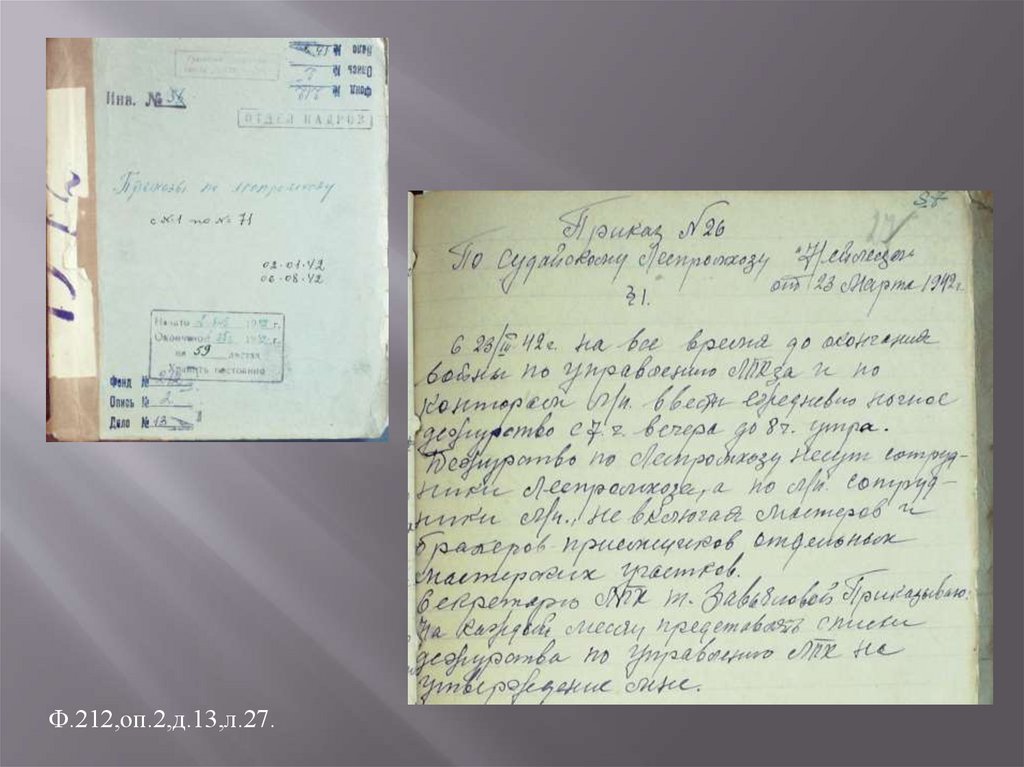 Дело №
Опись № 2
Фонд №
Инв. № 56
ОТДЕЛ КАДРОВ
Приказы по леспромхозу
с №1 по № 71
02.01.42
06.08.42
Начато 1942 г.
Окончено 1942 г.
на 59 листах
Хранить постоянно
Фонд № 212
Опись № 2
Дело № 13
Приказ №26
По Судайскому Леспромхозу
от 23 Марта 1942г.
§1.
С 23/III 42г. на все время до окончания
войны по управлению ЛПХза и по
конторам л/п. ввести ежедневно ночное
дежурство с 7 ч. вечера до 8 ч. утра.
Дежурство по Леспромхозу несут сотруд-
ники Леспромхоза, а по л/п. сотруд-
ники л/п., не включая мастеров и
бракеров-приемщиков отдельных
мастерских участков.
Секретарю ЛПХ т. Завьяловой Приказываю:
На каждый месяц представлять списки
дежурства по управлению ЛПХ на
утверждение мне.
Ф.212,оп.2,д.13,л.27.